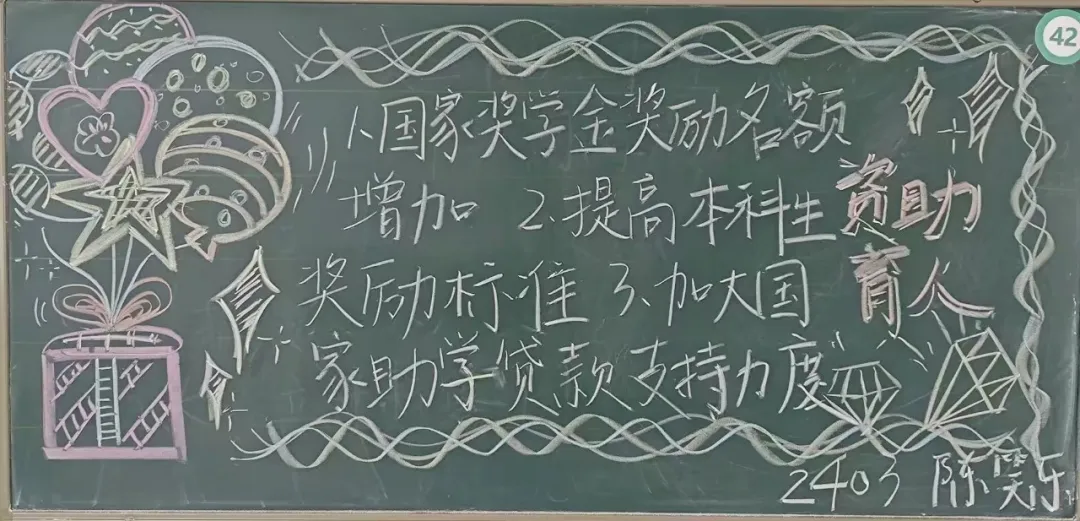 42
1、国家奖学金奖励名额
增加 2、提高本科生
奖励标准 3、加大国
家助学贷款支持力度
资助
育人
2403 陈笑乐